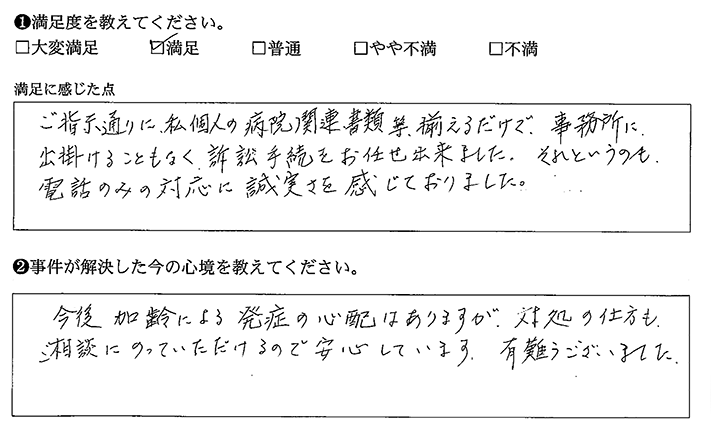 ❶満足度を教えてください。
□大変満足 ☑満足 □普通 □やや不満 □不満
満足に感じた点
ご指示通りに、私個人の病院関連書類等、揃えるだけで、事務所に
出掛けることもなく、訴訟手続をお任せ出来ました。それというのも、
電話のみの対応に誠実さを感じておりました。
❷事件が解決した今の心境を教えてください。
今後加齢による発症の心配はありますが、対処の仕方も
ご相談にのっていただけるので安心しています。有難うございました。